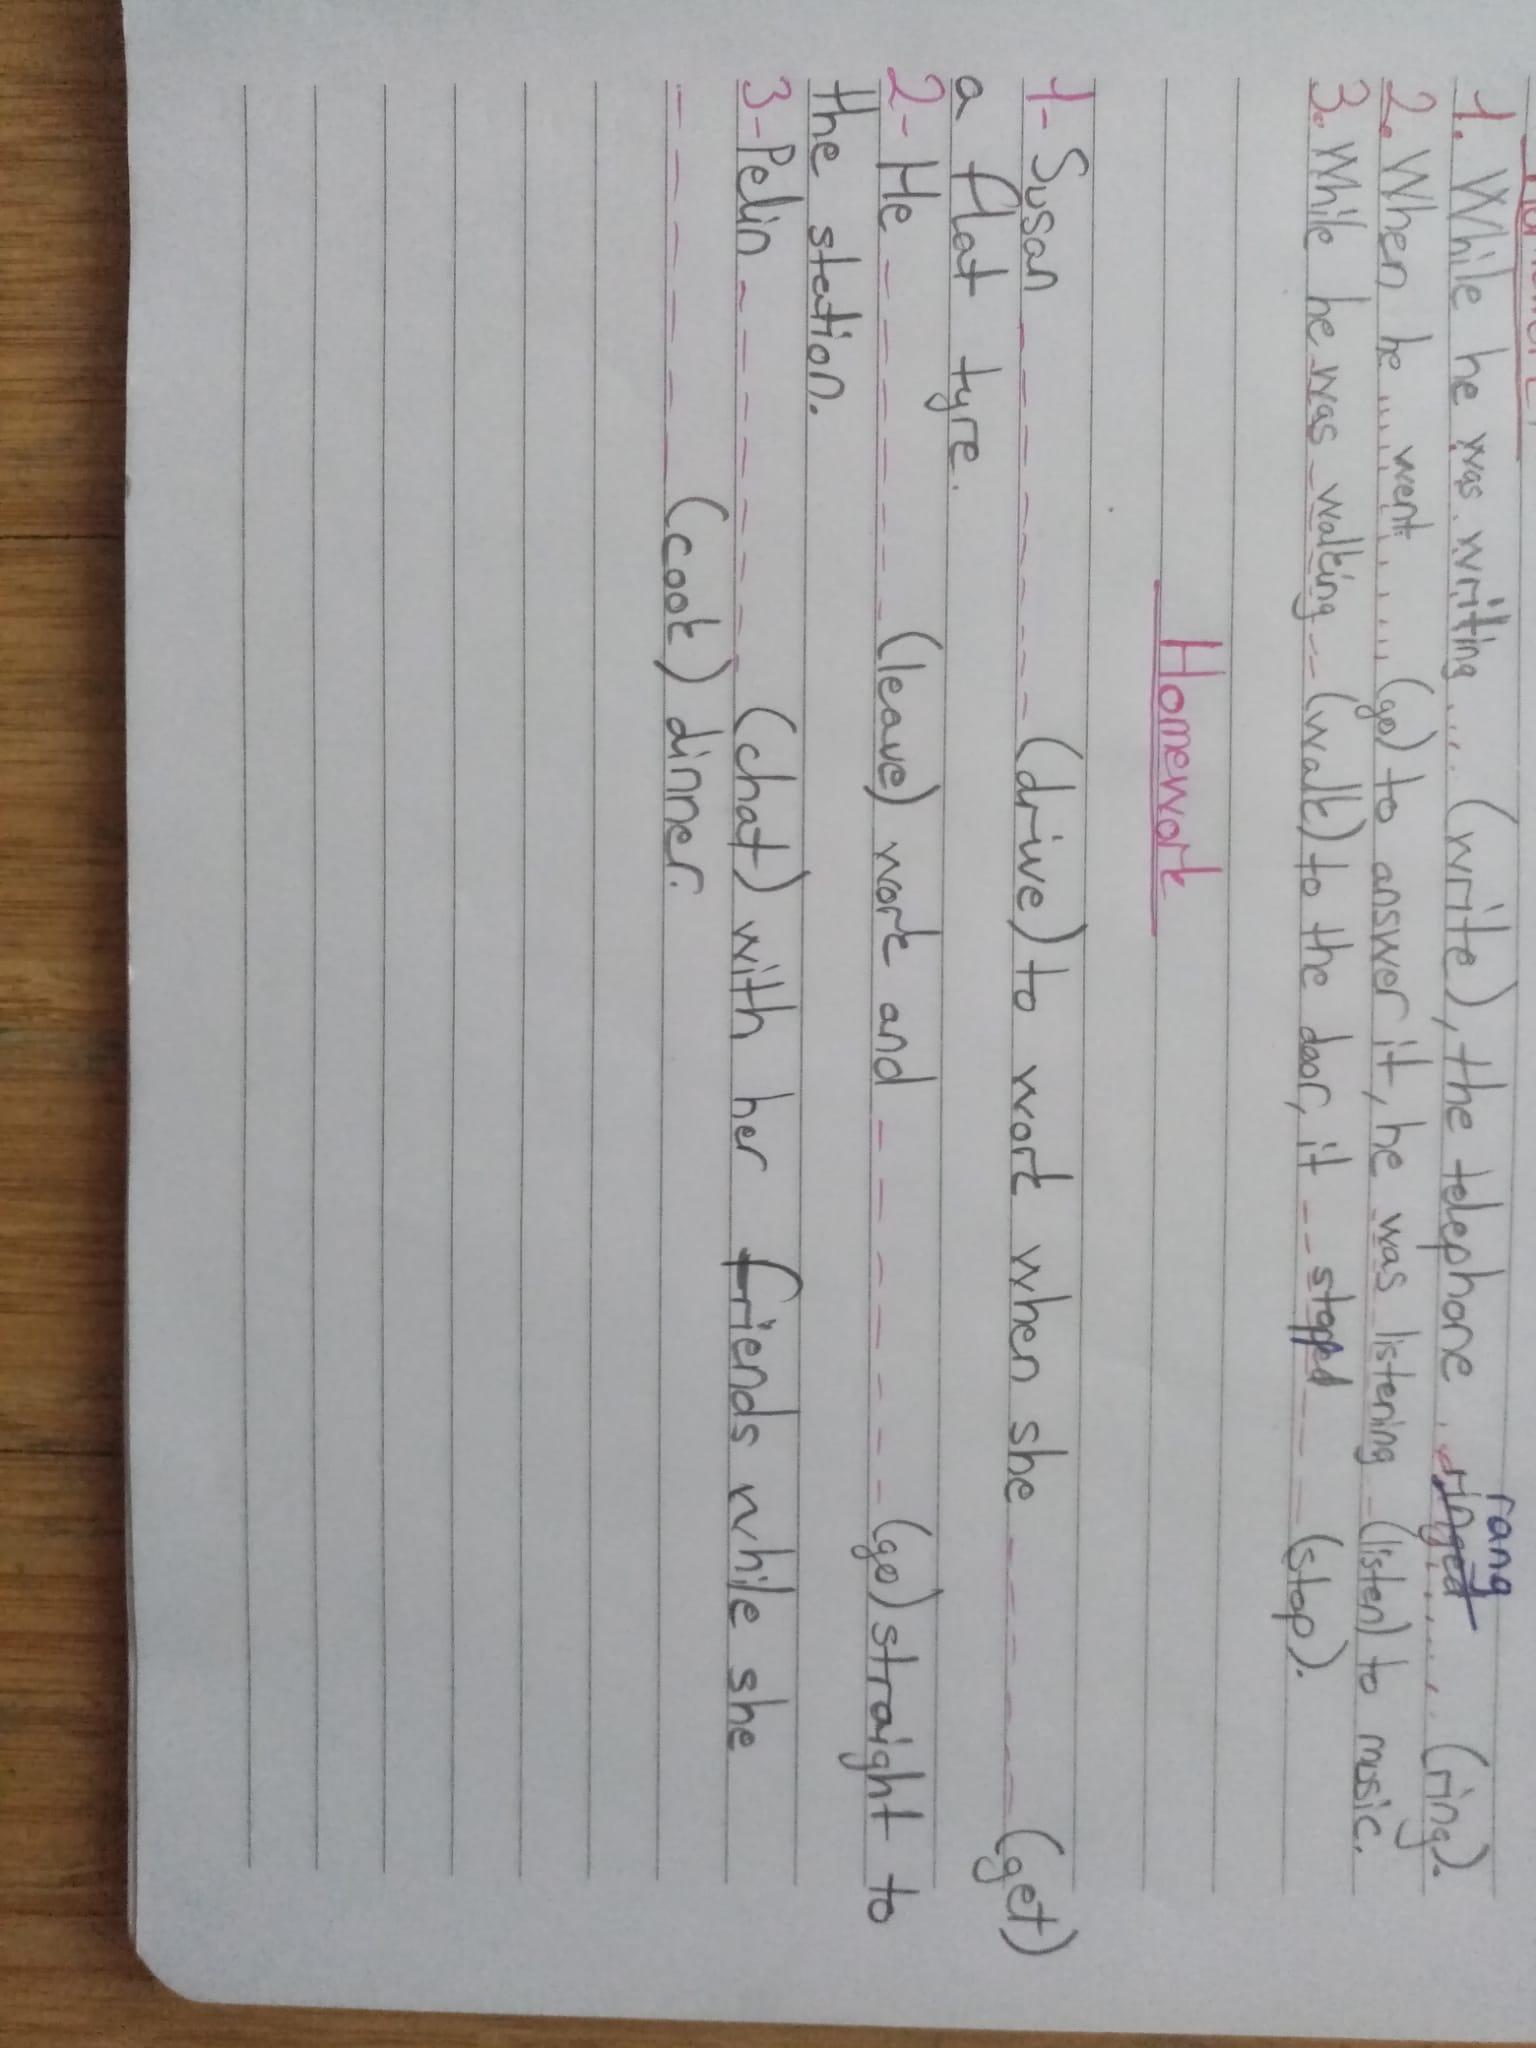 1. While he was writing.... (write), the telephone . ringed rang ...... (ring).
2. When he ..... went ...... (go) to answer it, he was listening - (listen) to music.
3. While he was walking -- (walk) to the door, it -- stopped -- (stop).
Homework
1- Susan ---------- (drive) to work when she -------- (get)
a flat tyre.
2- He --------- (leave) work and -------- (go) straight to
the station.
3- Pelin ---------- (chat) with her friends while she
------- (cook) dinner.